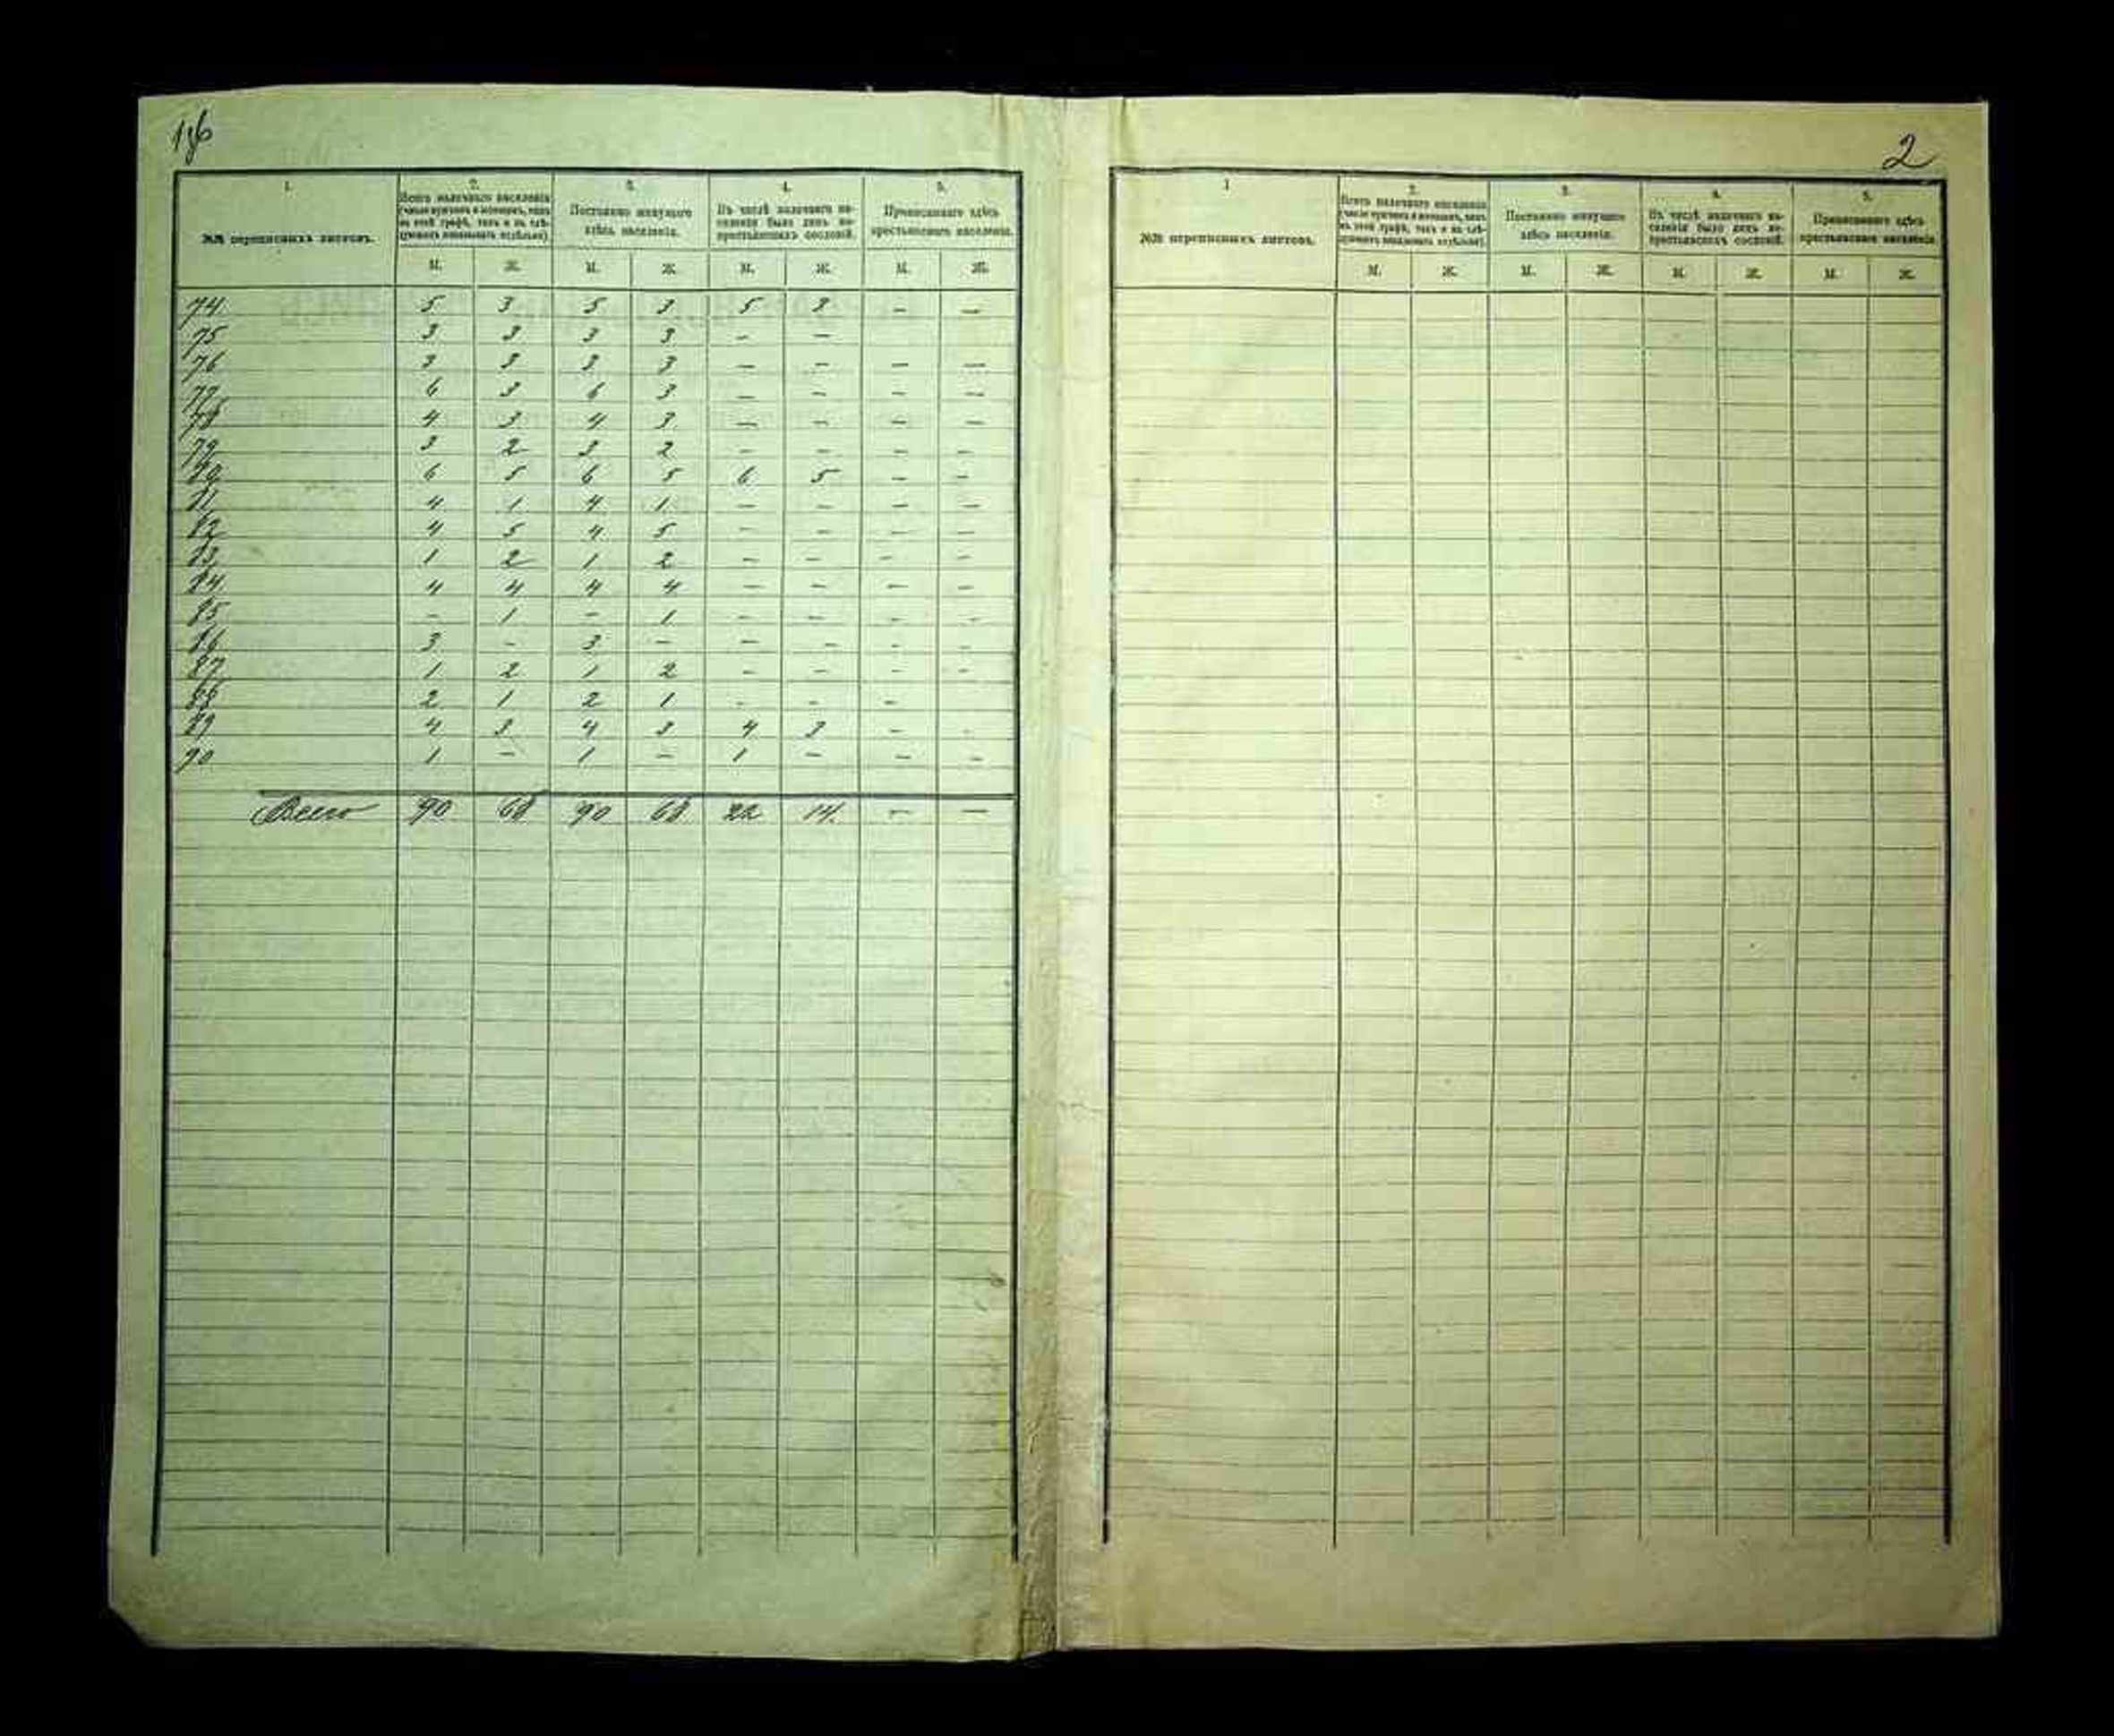 1об
1. 2. 3. 4. 5.
№№ переписныхъ листовъ.
Всего наличнаго населенія (число мужчинъ и женщинъ, какъ въ этой графѣ, такъ и въ слѣдующихъ показывать отдѣльно).
Постоянно живущаго здѣсь населенія.
Въ числѣ наличнаго населенія было лицъ некрестьянскихъ сословій.
Приписаннаго здѣсь крестьянскаго населенія.
М. Ж. М. Ж. М. Ж. М. Ж.
74 5 3 5 3 5 3 — —
75 3 3 3 3 — —
76 3 3 3 3 — — — —
77 6 3 6 3 — — — —
78 4 3 4 3 — — — —
79 3 2 3 2 — — — —
80 6 5 6 5 6 5 — —
81 4 1 4 1 — — — —
82 4 5 4 5 — — — —
83 1 2 1 2 — — — —
84 4 4 4 4 — — — —
85 — 1 — 1 — — — —
86 3 — 3 — — — — —
87 1 2 1 2 — — — —
88 2 1 2 1 — — —
89 4 3 4 3 4 3 — —
90 1 — 1 — 1 — — —
Всего 90 68 90 68 22 14 — —
2
1 2. 3. 4. 5.
№№ переписныхъ листовъ.
Всего наличнаго населенія (число мужчинъ и женщинъ, какъ въ этой графѣ, такъ и въ слѣдующихъ показывать отдѣльно).
Постоянно живущаго здѣсь населенія.
Въ числѣ наличнаго населенія было лицъ некрестьянскихъ сословій.
Приписаннаго здѣсь крестьянскаго населенія.
М. Ж. М. Ж. М. Ж. М. Ж.